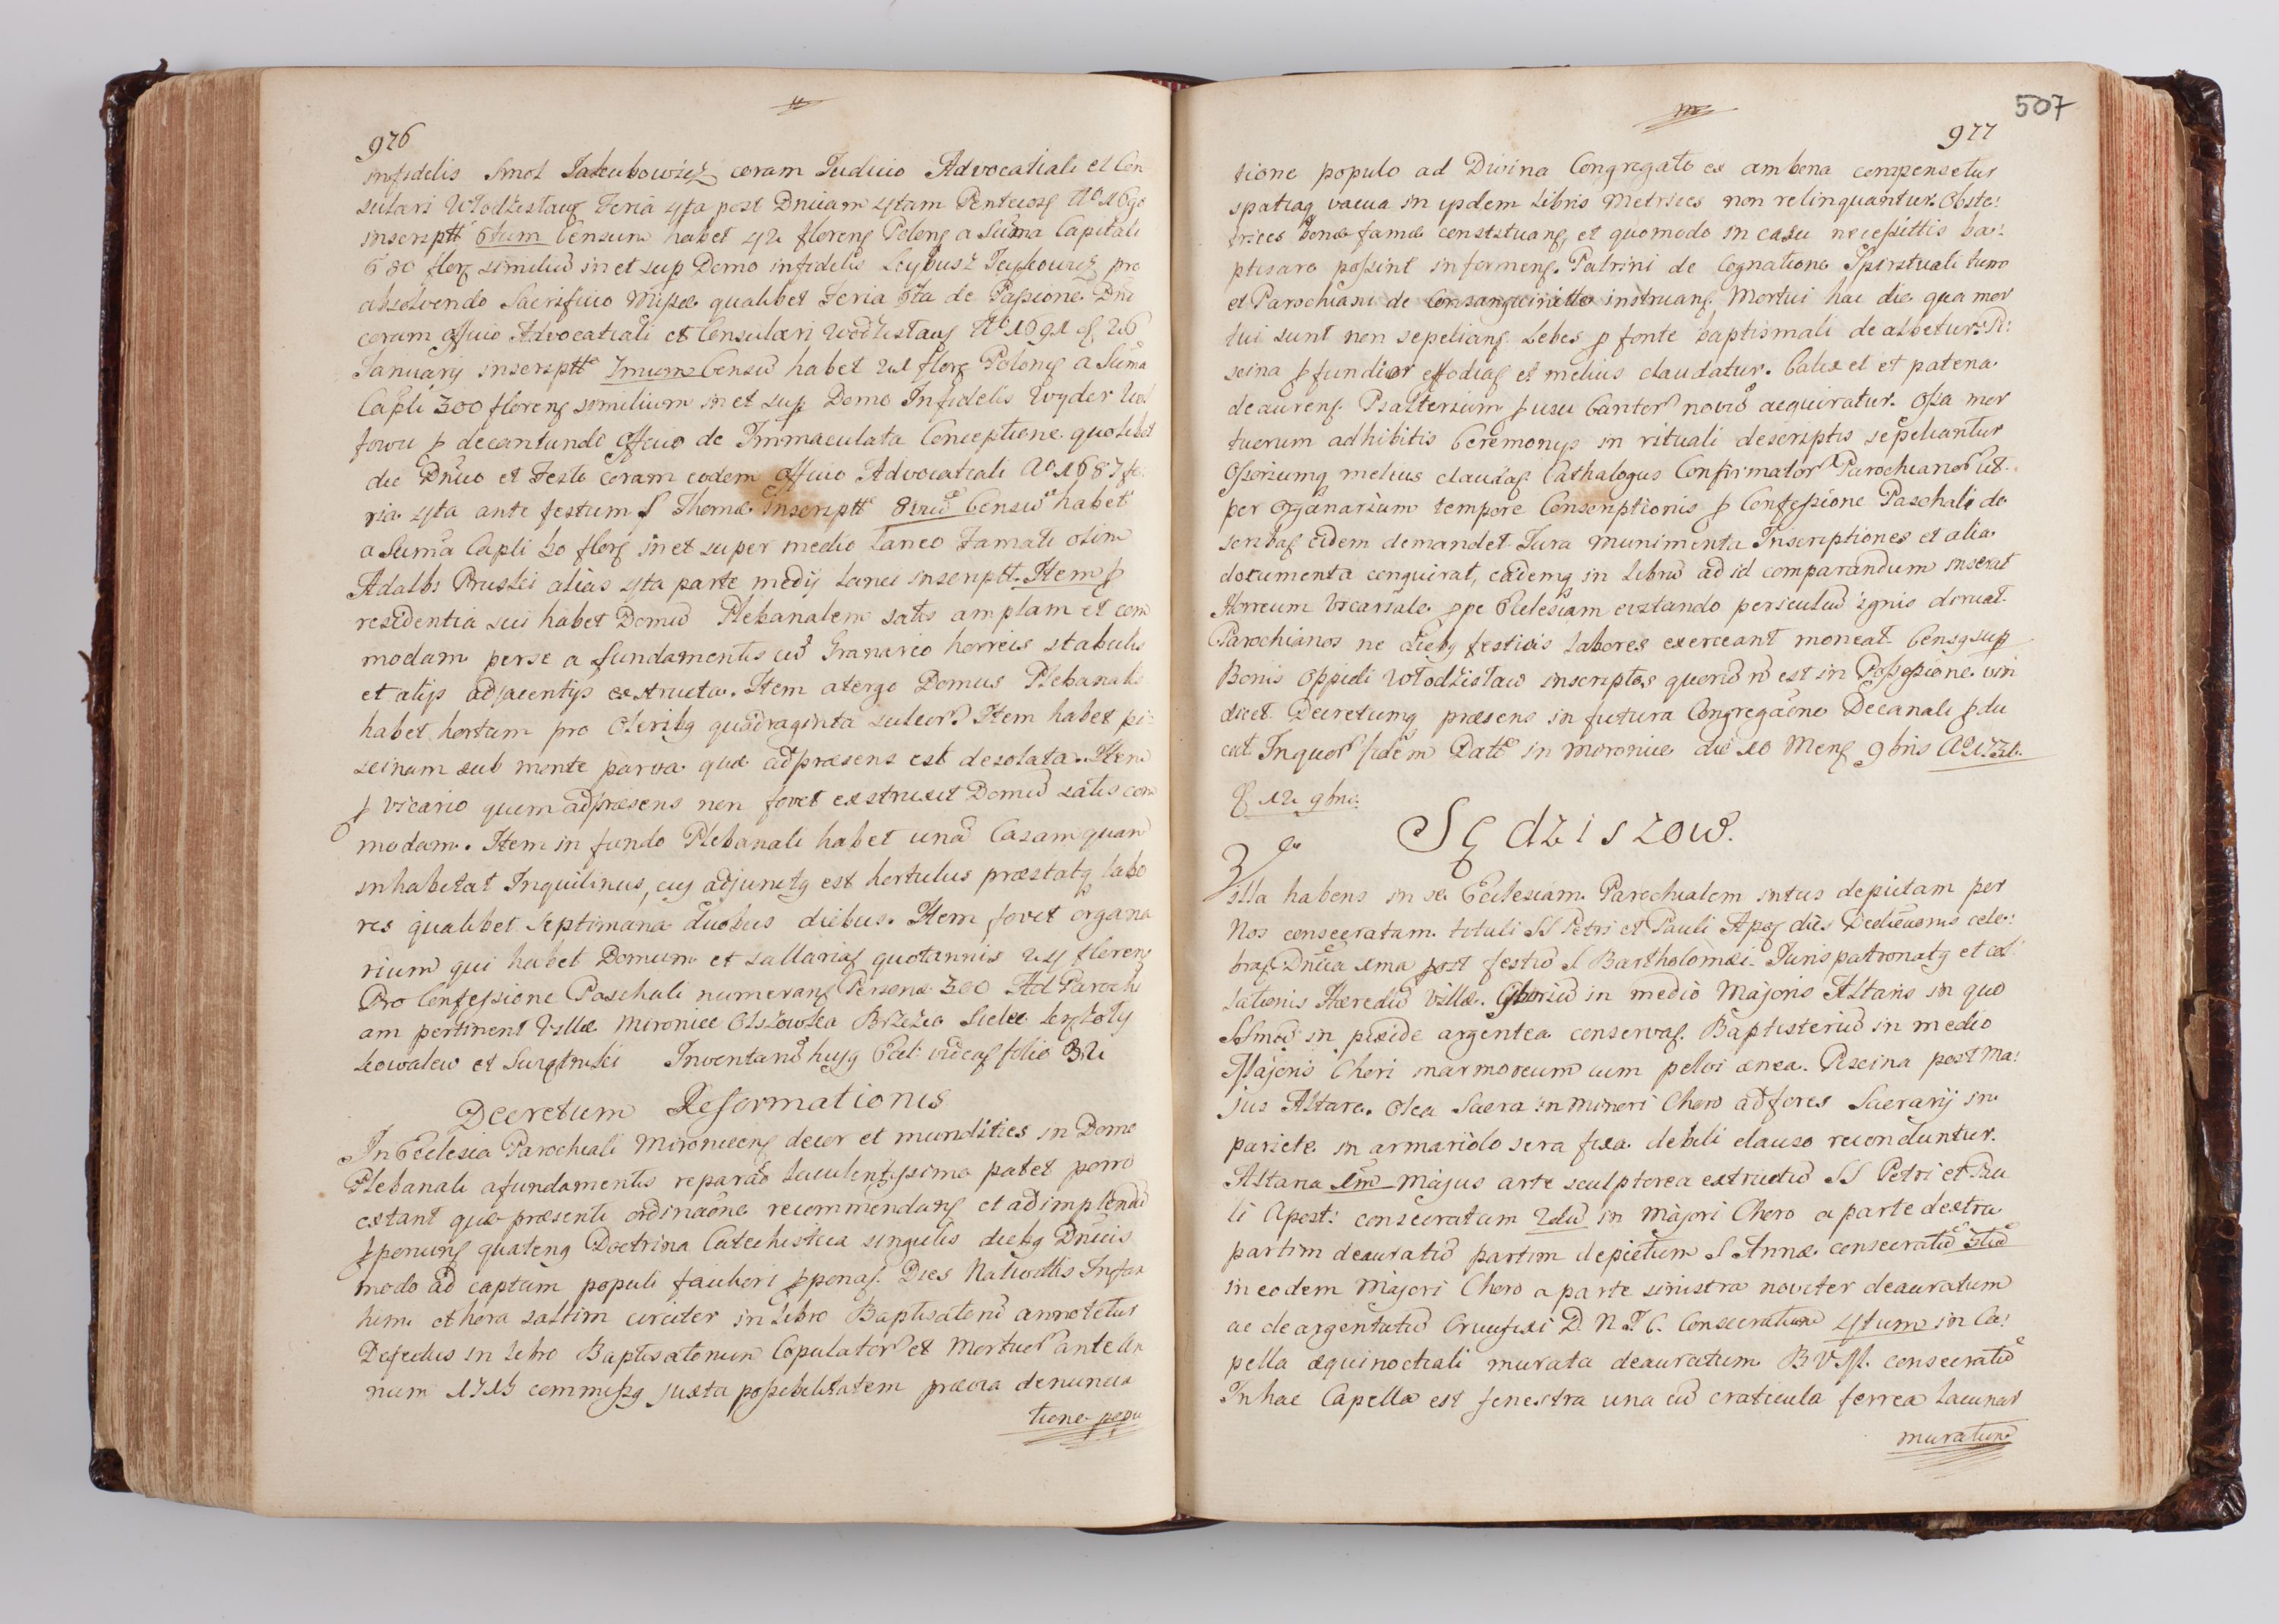 976
infidelis Smol Jakubowicz coram Judicio Advocatiali et Con
sulari Włodzislaus Feria 4ta post Dnicam 4tam Pentecos Ao 1690
inscriptt 6tum Censum habet 42 floren Polon a Suma Capitali
680 flor similiu in et sup Domo infidelis Leybusz Józkowicz pro
absolvendo Sacrificio Missæ qualibet Feria 6ta de Passione Dni
coram officio Advocatiali et Consulari Wodzislaus Ao 1691 d 26
January inscriptt 7mum Censu habet 21 flor Polon a Suma
Capli 300 floren similium in et sup Domo Infidelis
p decantando Officio de Immaculata Conceptione quolibet
die Dnico et Festo coram eodem Officio Advocatiali Ao 1687 fe
ria 4ta ante festum S Thomæ inscriptt 8vu Censu habet
a Suma Capli 30 flor in et super medio Laneo Famati olim
Adalbi Pruski alias 4ta parte medij Lanei inscriptt. Item p
residentia sui habet Domu Plebanalem satis amplam et com
modam perse a fundamentis cu Granario horreis stabulis
et alijs adjacentijs extructa. Item a tergo Domus Plebanalis
habet hortum pro Olerib quadraginta sulcor. Item habet pi
scinam sub monte parva quæ adpræsens est desolata. Item
p vicario quem adpræsens non fovet exstruxit Domu satis com
modam. Item in fundo Plebanali habet una Casam quam
inhabitat Inquilinus, cuj adjunctq est hortulus præstatq labo
res qualibet septimana duobus diebus. Item fovet organa
rium qui habet Domum et sallaria quotannis 24 floren
Pro Confessione Paschali numeran Personæ 300 Ad Parochi
am pertinent Villæ Mironice Olszowka Brzezia
Kowalow et Inventariu hujq Eccl: videas folio 32
Decretum Reformationis
In Ecclesia Parochiali Mironicen decor et mundities in Domo
Plebanali a fundamentis reparao luculentissimo patet porro
extant quæ præsenti ordinaone recommendan et adimplendu
pponun quatenq Doctrina Catechistica singulis diebq Dnicis
modo ad captum populi faciliori pponas. Dies Nativittis Infan
tium et hora saltim circiter in Libro Baptisatoru annotetur
Defectus in Libro Baptisatorum Copulator et Mortuor ante An
num 1715 commissq juxta possibilitatem prævia denuncia
tione popu
507
977
tione populo ad Divina Congregato ex ambona compensetur
spatiaq vacua in ijsdem Libris Metrices non relinquantur. Obste:
trices bonæ famæ constituan, et quomodo in casu necessittis ba:
ptisare possint informen. Patrini de Cognatione Spirituali
et Parochiani de Consanguinitte instruan. Mortui hac die qua mor
tui sunt non sepelian. Lebes p fonte baptismali dealbetur. Pi:
scina pfundior effodias et melius claudatur. Calix et patena
deauren. Psalterium p usu Cantor novu acquiratur. Ossa mor
tuorum adhibitis Ceremonys in rituali descriptis sepeliantur
Ossoriumq melius claudas. Cathalogus Confirmator Parochianor ut
per organarium tempore Conscriptionis p Confessione Paschali de
scribas eidem demandet. Jura munimenta Inscriptiones et alia
documenta conquirat, eademq in Libru ad id comparandum inserat
Horreum Vicariale ppe Ecclesiam evitando periculu ignis diruat.
Parochianos ne diebq festivis labores exerceant moneat. Censq sup
Bonis Oppidi Włodzisław inscriptos quoru n est in Possessione vin
dicet. Decretumq præsens in futura Congregaone Decanali pdu
cat. In quor fidem Datt in Mironice die 10 Mens 9bris Ao 1721.
d 12 9bris
Sędziszow.
Villa habens in se Ecclesiam Parochialem intus depictam per
Nos consecratam tituli SS Petri et Pauli Apos dies Dedicaonis cele:
bras Dnica 1ma post festu S Bartholomæi. Juris patronatq et col
lationis Hæredu Villæ. Ciboriu in medio Majoris Altaris in quo
SSmu in pixide argentea conservas. Baptisteriu in medio
Majoris Chori marmoreum cum pelvi ænea. Piscina post Ma:
jus Altare. Olea Sacra in minori Choro ad fores Sacrarij in
pariete in armariolo sera fixa debili clauso reconduntur.
Altaria 1mu Majus arte sculptorea extructu SS Petri et Pau
li Apost: consecratum 2du in Majori Choro a parte dextra
partim deauratu partim depictum S Annæ consecratu 3tiu
in eodem Majori Choro a parte sinistra noviter deauratum
ac deargentatu Crucifixi D. N. J. C. Consecratum 4tum in Ca:
pella æquinoctiali murata deauratum B V M. consecratu
In hac Capella est fenestra una cu craticula ferrea lacunar
muratum